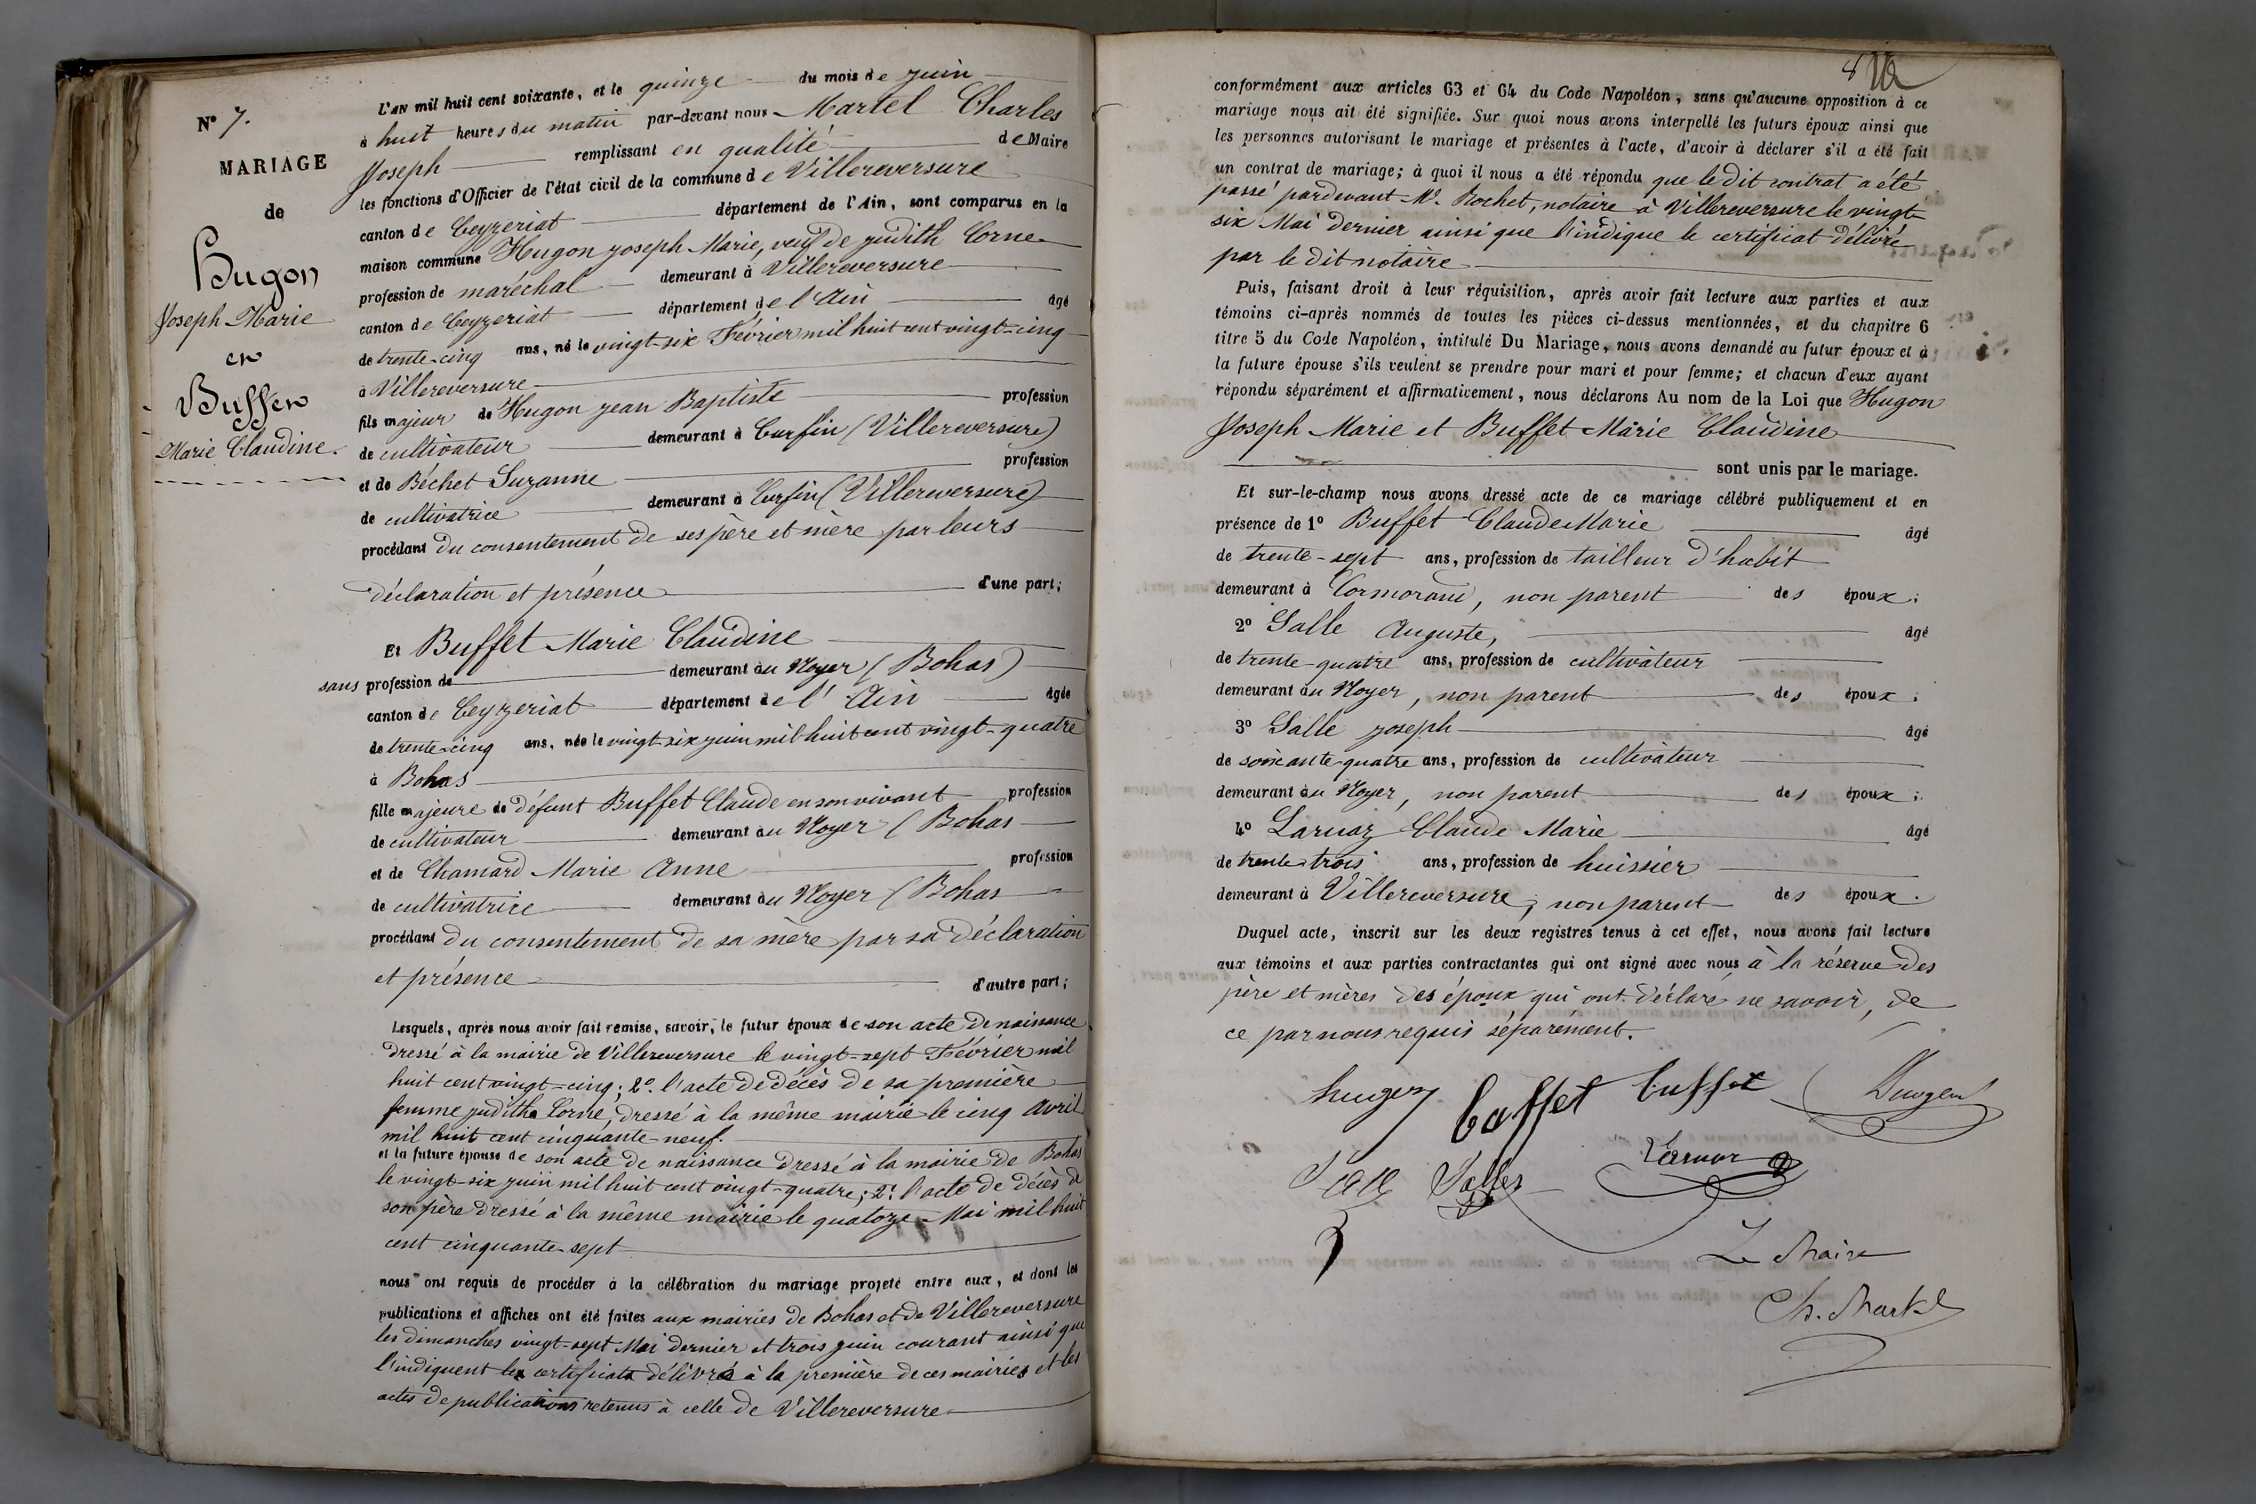 N° 7.
MARIAGE
de
Hugon
Joseph Marie
et
Buffet
Marie Claudine.
L'AN mil huit cent soixante, et le quinze du mois de juin
à huit heures du matin par-devant nous Martel Charles
Joseph remplissant en qualité de Maire
les fonctions d'Officier de l'état civil de la commune de Villereversure
canton de Ceyzeriat département de l'Ain, sont comparus en la
maison commune Hugon Joseph Marie, veuf de Judith Corne
profession de maréchal demeurant à Villereversure
canton de Ceyzeriat département de l'Ain âgé
de trente-cinq ans, né le vingt-six Février mil huit cent vingt-cinq
à Villereversure
fils majeur de Hugon Jean Baptiste profession
de cultivateur demeurant à Curfin (Villereversure)
et de Béchet Suzanne profession
de cultivatrice demeurant à Curfin (Villereversure)
procédant du consentement de ses père et mère par leurs
déclaration et présence d'une part;
Et Buffet Marie Claudine
sans profession de demeurant au Noyer (Bohas)
canton de Ceyzeriat département de l'Ain âgée
de trente-cinq ans, née le vingt-six juin mil huit cent vingt-quatre
à Bohas
fille majeure de défunt Buffet Claude en son vivant profession
de cultivateur demeurant au Noyer (Bohas
et de Chamard Marie Anne profession
de cultivatrice demeurant au Noyer (Bohas
procédant du consentement de sa mère par sa déclaration
et présence d'autre part;
Lesquels, après nous avoir fait remise, savoir, le futur époux de son acte de naissance
dressé à la mairie de Villereversure le vingt-sept Février mil
huit cent vingt-cinq; 2° l'acte de décès de sa première
femme Judith Corne, dressé à la même mairie le cinq Avril
mil huit cent cinquante-neuf.
et la future épouse de son acte de naissance dressé à la mairie de Bohas
le vingt-six juin mil huit cent vingt-quatre; 2° l'acte de décès de
son père dressé à la même mairie le quatorze Mai mil huit
cent cinquante-sept
nous ont requis de procéder à la célébration du mariage projeté entre eux, et dont les
publications et affiches ont été faites aux mairies de Bohas et de Villereversure
les dimanches vingt-sept Mai dernier et trois juin courant ainsi que
l'indiquent les certificats délivré à la première de ces mairies et les
actes de publications retenus à celle de Villereversure
conformément aux articles 63 et 64 du Code Napoléon, sans qu'aucune opposition à ce
mariage nous ait été signifiée. Sur quoi nous avons interpellé les futurs époux ainsi que
les personnes autorisant le mariage et présentes à l'acte, d'avoir à déclarer s'il a été fait
un contrat de mariage; à quoi il nous a été répondu que le dit contrat a été
passé pardevant Me. Rochet, notaire à Villereversure le vingt-
six Mai dernier ainsi que l'indique le certificat délivré
par le dit notaire
Puis, faisant droit à leur réquisition, après avoir fait lecture aux parties et aux
témoins ci-après nommés de toutes les pièces ci-dessus mentionnées, et du chapitre 6
titre 5 du Code Napoléon, intitulé Du Mariage, nous avons demandé au futur époux et à
la future épouse s'ils veulent se prendre pour mari et pour femme; et chacun d'eux ayant
répondu séparément et affirmativement, nous déclarons Au nom de la Loi que Hugon
Joseph Marie et Buffet Marie Claudine
sont unis par le mariage.
Et sur-le-champ nous avons dressé acte de ce mariage célébré publiquement et en
présence de 1° Buffet Claude Marie âgé
de trente-sept ans, profession de tailleur d'habit
demeurant à Cormorand, non parent des époux;
2° Salle Auguste, âgé
de trente-quatre ans, profession de cultivateur
demeurant au Noyer, non parent des époux;
3° Salle Joseph âgé
de soixante-quatre ans, profession de cultivateur
demeurant au Noyer, non parent des époux;
4° Laruaz Claude Marie âgé
de trente-trois ans, profession de huissier
demeurant à Villereversure, non parent des époux.
Duquel acte, inscrit sur les deux registres tenus à cet effet, nous avons fait lecture
aux témoins et aux parties contractantes qui ont signé avec nous à la réserve des
père et mères des époux qui ont déclaré ne savoir, de
ce par nous requis séparément.
hugon buffet buffet
Salle Laruaz
Le Maire
Ch. Martel